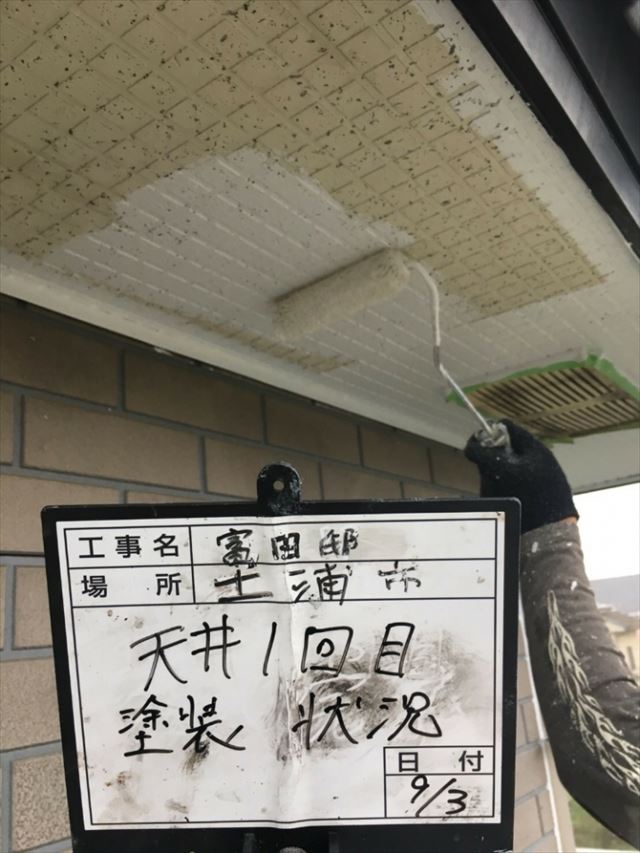 工事名 富田邸
場所 土浦市
天井1回目
塗装 状況
日付
9/3